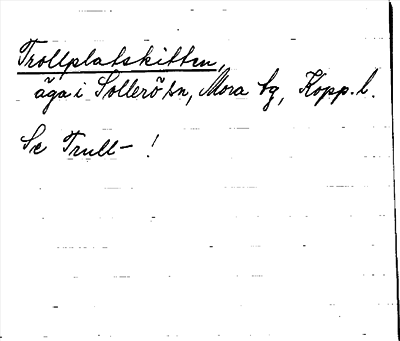 Trollplatskitten,
äga i Sollerö sn, Mora tg, Kopp. l.
Se Trull- !